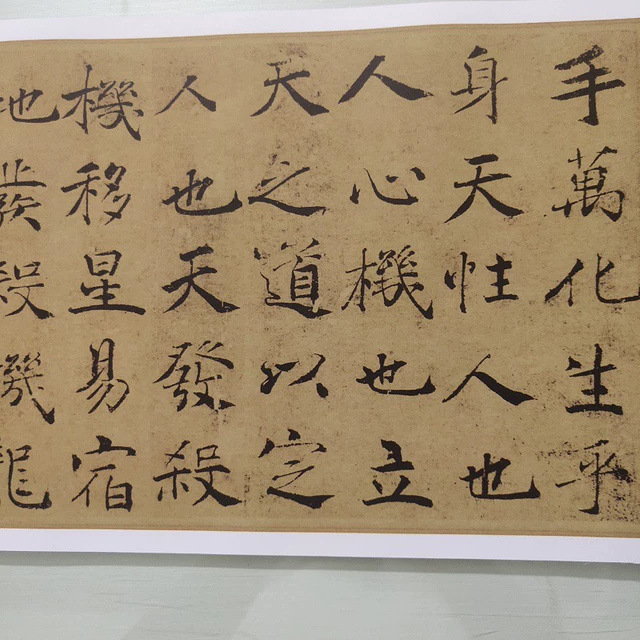 手萬化生乎
身天性人也
人心機也立
天之道以定
人也天發殺
機移星易宿
地發殺機龍